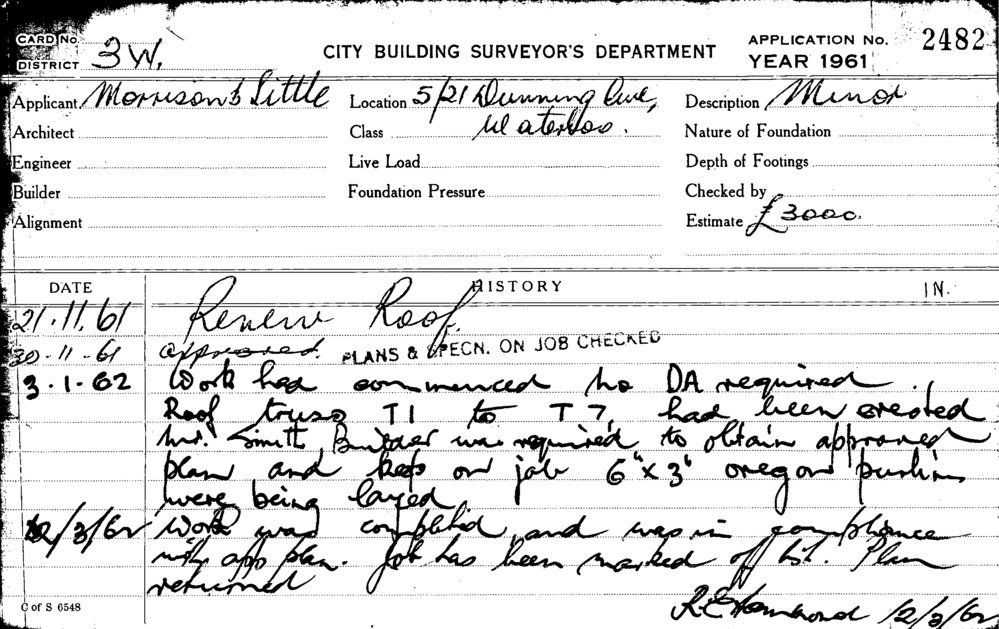 CARD No.
DISTRICT 3W.
CITY BUILDING SURVEYOR'S DEPARTMENT
APPLICATION No. 2482
YEAR 1961
Applicant Morrison & Little
Location 5/21 Dunning Ave,
Waterloo.
Description Minor
Architect
Class
Nature of Foundation
Engineer
Live Load
Depth of Footings
Builder
Foundation Pressure
Checked by
Alignment
Estimate £3000.
DATE
HISTORY
IN.
21.11.61 Renew Roof.
30-11-61 approved. PLANS & SPECN. ON JOB CHECKED
3.1.62 Work had commenced no DA required.
Roof truss T1 to T7, had been erected
Mr. Smith Builder was required to obtain approved
plan and keep on job 6"x3" oregon purlins
were being layed
12/3/62 Work was completed and was in compliance
with app plan. Job has been marked off list. Plan
returned
R.E. Hammond 12/3/62
C of S 6548